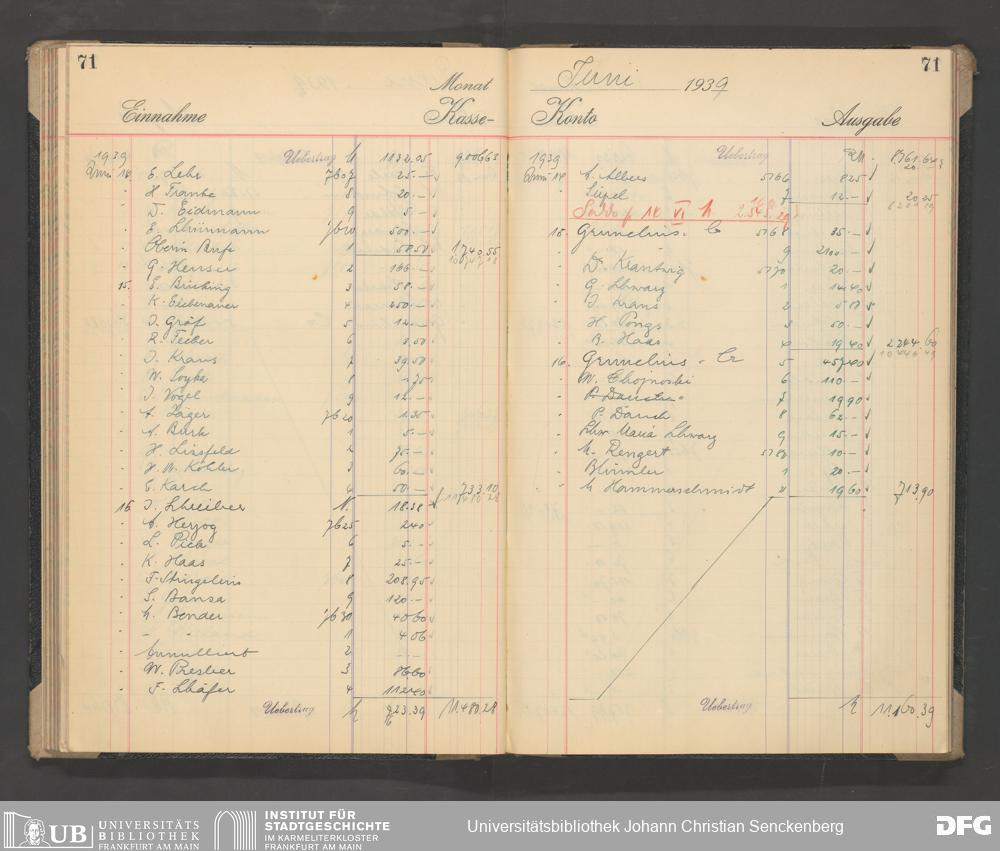 71
Monat
Einnahme Kasse-
1939 Uebertrag 1132.05 9.006.63
Juni 14. E. Lehr 7607 25.—
" H. Franke 8 20.—
" D. Eidmann 9 5.—
" E. 7610 500.—
" Oberin 1 58.50 1740.55
" G. Henser 2 166.—
15. S. Brücking 3 58.—
" K. Eichenauer 4 250.—
" J. Gräf 5 12.—
" R. Feeber 6 3.50
" J. Kraus 7 39.50
" W. Soyka 8 -.75
" J. Vogel 9 12.—
" A. Jäger 7620 1.35
" A. Burk 1 5.—
" H. Lissfeld 2 75.—
" H. W. Köhler 3 60.—
" E. Karch 4 50.— 733.10
16. J. Schreiber N. 18.38
" A. Herzog 7625 2.40
" L. Pieh 6 5.—
" K. Haas 7 25.—
" F. Stringelin 8 208.95
" S. Bansa 9 120.—
" H. Bender 7630 40.60
" " 1 4.06
" Annulliert 2 —
" W. Presber 3 86.60
" F. Schäfer 4 112.40
Uebertrag 623.39 11.480.28
71
Juni 1939
Konto Ausgabe
1939 Uebertrag RM. 8961.64
Juni 14. A. Albers 5166 8.25
" Lüpel 7 12.— 20.25
Saldo 14 VI
15. Grunelius. 5168 35.—
" " 9 2100.—
" Dr. Krantwig 5170 20.—
" G. Schwarz 1 14.40
" J. Kraus 2 5.85
" H. Pongs 3 50.—
" R. Haas 4 19.40 2244.60
16. Grunelius. 5 457.40
" W. Chojnoski 6 110.—
" 7 19.90
" P. Dauch 8 62.—
" Schw. Maria Schwarz 9 15.—
" H. Rengert 5180 10.—
" Blümler 1 20.—
" H. Hammerschmidt 2 19.60 713.90
Uebertrag 11.160.39
UB UNIVERSITÄTS
BIBLIOTHEK
FRANKFURT AM MAIN
INSTITUT FÜR
STADTGESCHICHTE
IM KARMELITERKLOSTER
FRANKFURT AM MAIN
Universitätsbibliothek Johann Christian Senckenberg
DFG